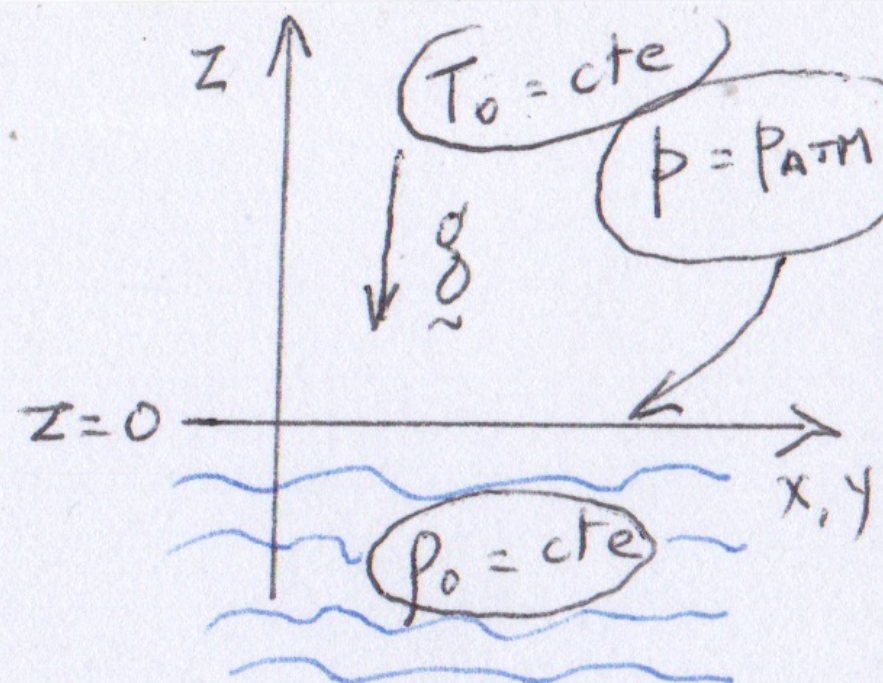 z
T₀ = cte
p = pATM
g
z=0
x, y
ρ₀ = cte